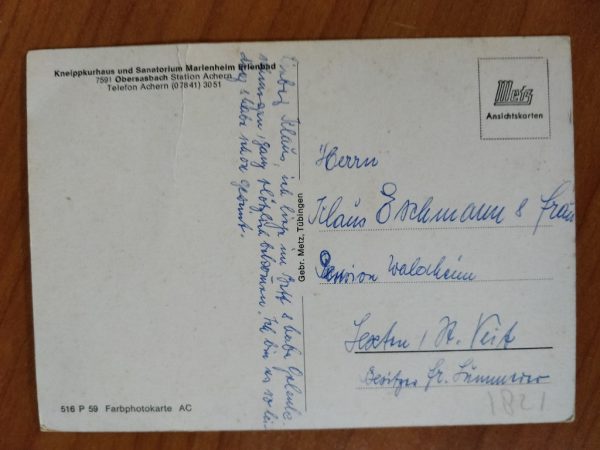 Kneippkurhaus und Sanatorium Marienheim Erlenbad
7591 Obersasbach Station Achern
Telefon Achern (07841) 3051
Lieber Klaus, ich liege im Bett & habe Gelenk-
ganz plötzlich bekommen. Ich bin
habe
Gebr. Metz, Tübingen
516 P 59 Farbphotokarte AC
Metz
Ansichtskarten
Herrn
Klaus Eschmann & Frau
Pension Waldheim
Sexten / St. Veit
Besitzer Fr. Summerer
1821